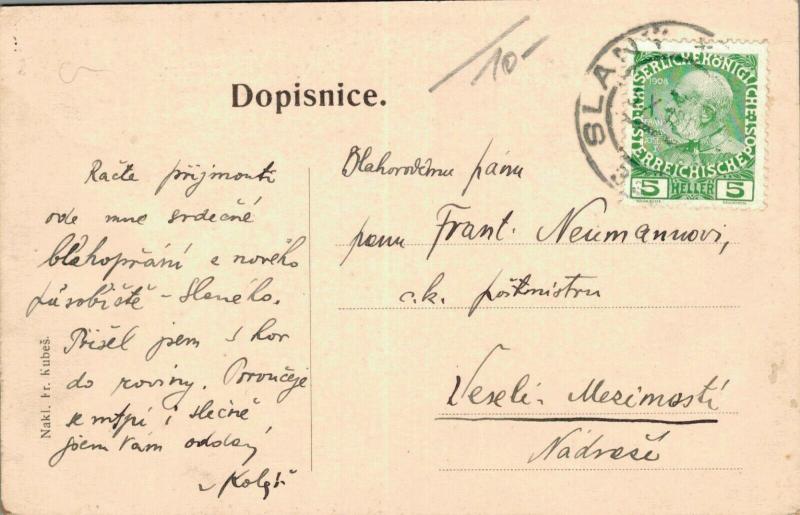 /10-
Dopisnice.
SLANÝ
KAISERLICHE KÖNIGLICHE
ÖSTERREICHISCHE POST
1908
5 HELLER 5
Račte přijmouti
ode mne srdečné
blahopřání z nového
působiště - Slaného.
Přišel jsem s hor
do roviny. Poroučeje
se mtpí i slečně
jsem Vám oddaný
Blahorodému pánu
panu Frant. Neumannovi,
c.k. poštmistru
Veselí - Mezimostí
Nádraží
Nakl. Fr. Kubeš.